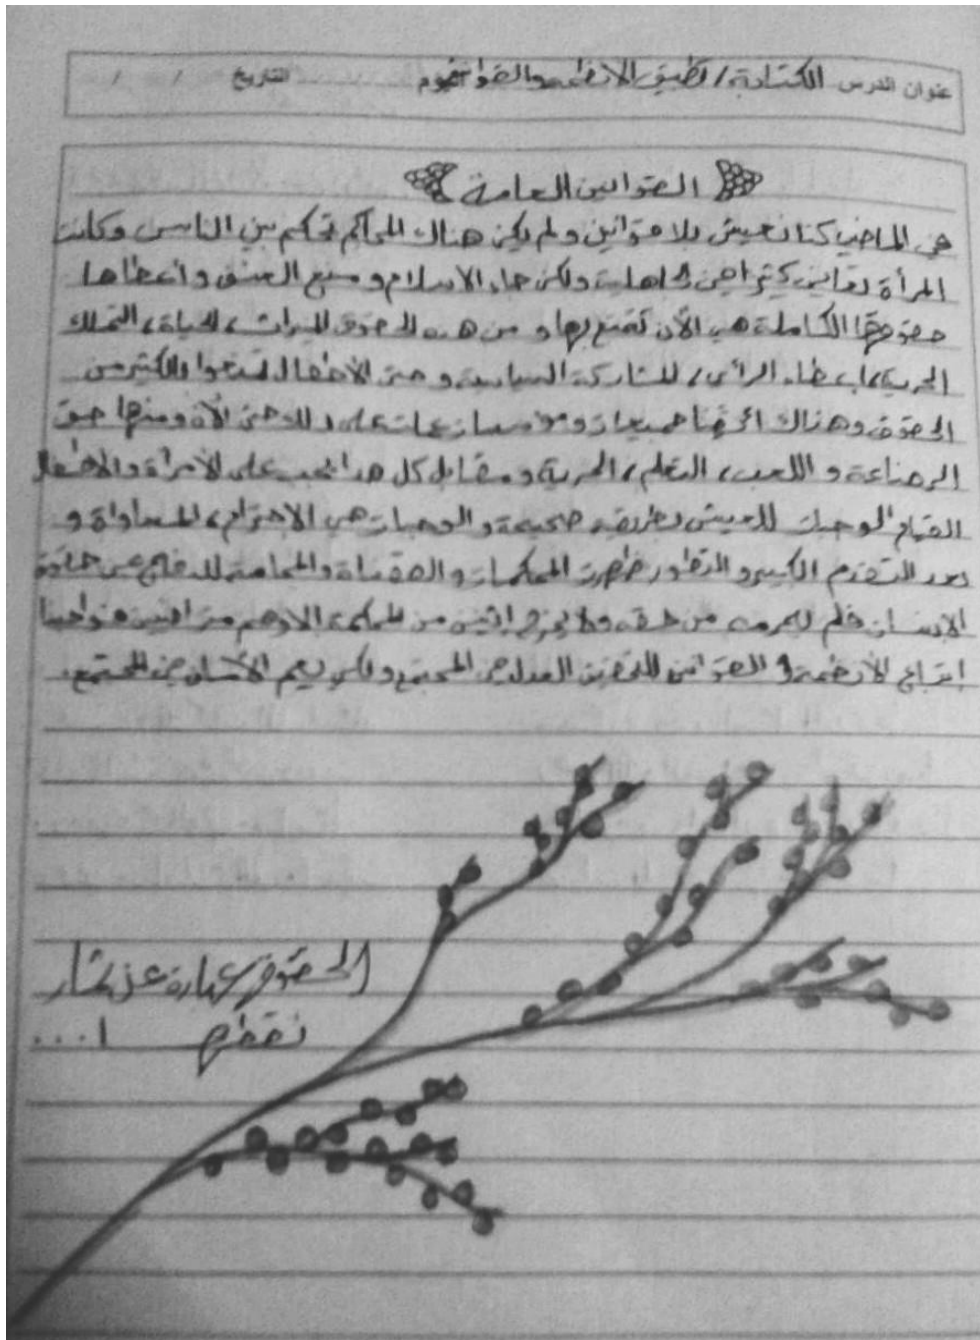 عنوان الدرس الكتابة / تطبيق الانظمة والقوانين التاريخ / /
القوانين العامة
في الماضي كنا نعيش بلا قوانين ولم يكن هناك المحاكم تحكم بين الناس وكانت
المرأة تعاني كثيرا في الجاهلية ولكن جاء الاسلام ومنع العنف وأعطاها
حقوقها الكاملة هي الأن تتمتع بها ومن هذه الحقوق الميراث، الحياة، التملك
الحرية، إبعطاء الرأي، المشاركة السياسية وحتى الأطفال تمتعوا بالكثير من
الحقوق وهناك أيضا جمعيات ومؤسسات على ذلك حتى الأن ومنها حق
الرضاعة و اللعب، التعلم، الحرية ومقابل كل هذا يجب على الأمرأة والأطفال
القيام الوجبات للعيش بطريقة صحيحة والوجبات هي الاحترام، المساواة و
بعد التقدم الكبير و التطور ظهرت المحكمات و القضاة والمحامية للدفاع عن
الإنسان فلم يحرمه من حقه ولا يخرج اثنين من المحكمة الا وهم متراضين فواجبنا
إتباع الأنظمة و القوانين لتحقيق العدل في المجتمع ولكي يعم الأمان في المجتمع.
الحقوق عبارة عن ثمار
نقطفها ....